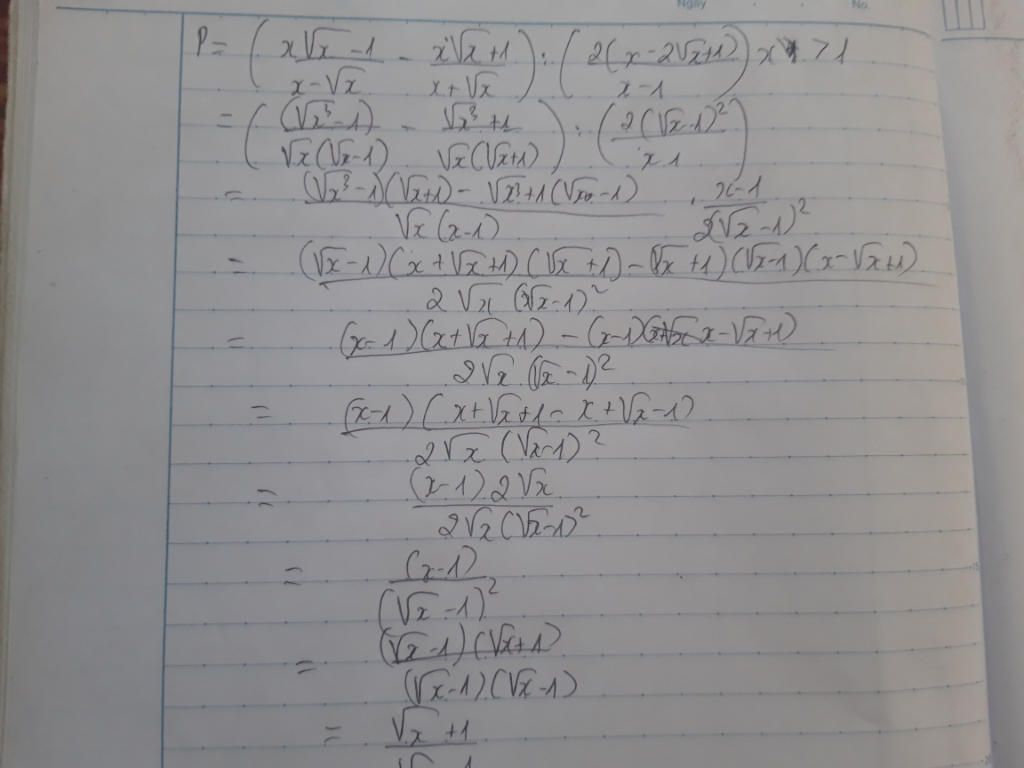 Ngày No.
P = ( (x√x - 1)/(x - √x) - (x√x + 1)/(x + √x) ) : ( 2(x - 2√x + 1)/(x - 1) ) x > 1
= ( (√x³ - 1)/(√x(√x - 1)) - (√x³ + 1)/(√x(√x + 1)) ) : ( 2(√x - 1)²/(x - 1) )
= ((√x³ - 1)(√x + 1) - √x³ + 1(√x - 1))/(√x(x - 1)) . (x - 1)/(2√x - 1)²
= ((√x - 1)(x + √x + 1)(√x + 1) - (√x + 1)(√x - 1)(x - √x + 1))/(2√x(√x - 1)²)
= ((x - 1)(x + √x + 1) - (x - 1)(x - √x + 1))/(2√x(√x - 1)²)
= ((x - 1)(x + √x + 1 - x + √x - 1))/(2√x(√x - 1)²)
= ((x - 1) 2√x)/(2√x(√x - 1)²)
= (x - 1)/(√x - 1)²
= ((√x - 1)(√x + 1))/((√x - 1)(√x - 1))
= (√x + 1)/(√x - 1)